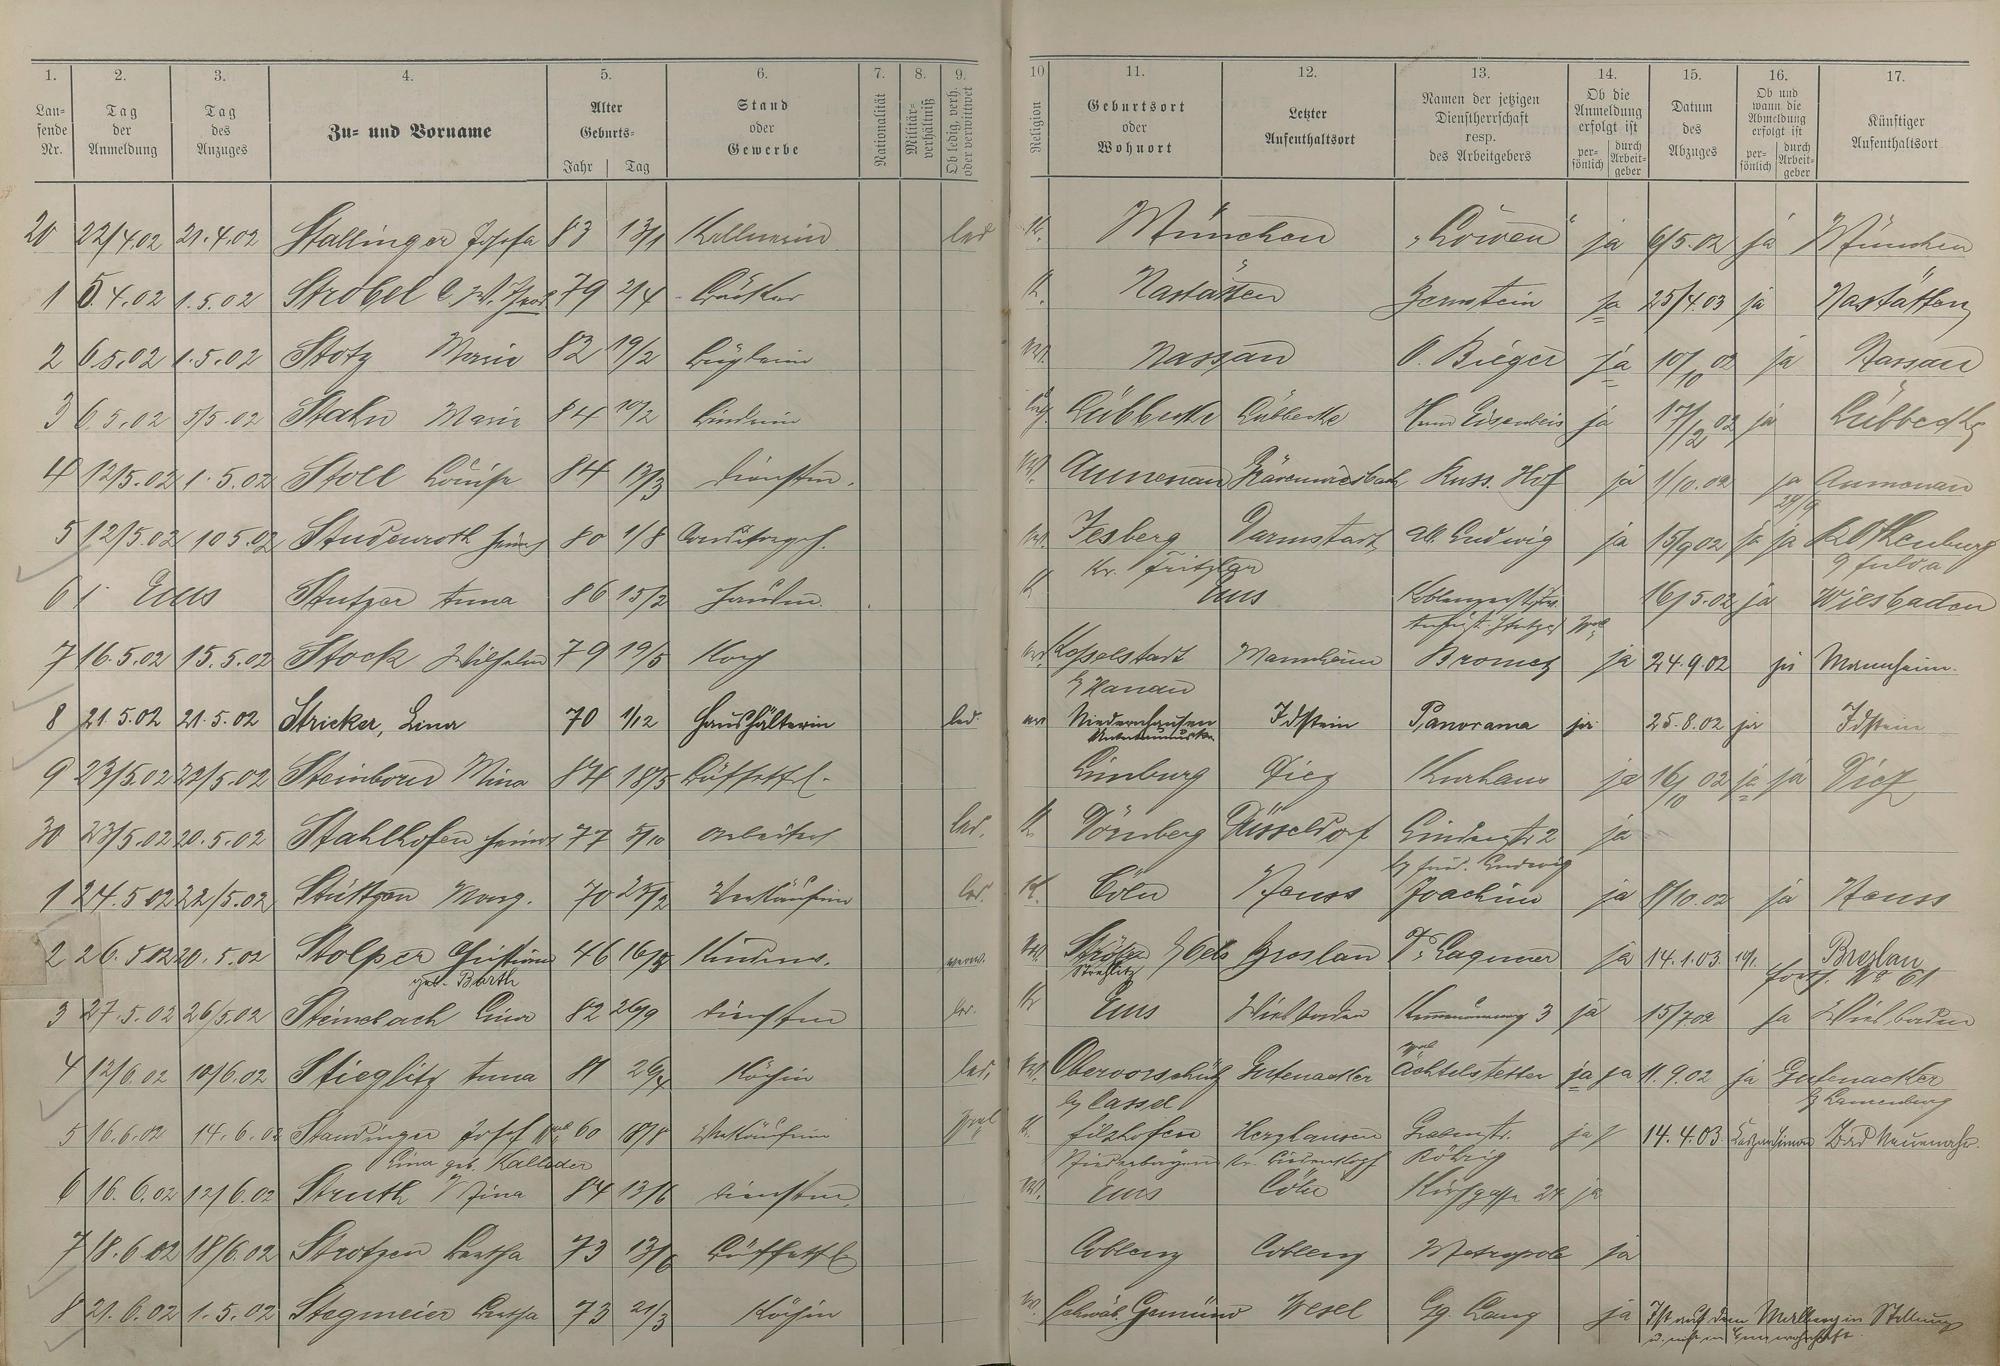 1. 2. 3. 4. 5. 6. 7. 8. 9. 10 11. 12. 13. 14. 15. 16. 17.
Laufende Nr. | Tag der Anmeldung | Tag des Anzuges | Zu- und Vorname | Alter Geburts- Jahr Tag | Stand oder Gewerbe | Nationalität | Militärverhältniß | Ob ledig, verh. oder verwitwet | Religion | Geburtsort oder Wohnort | Letzter Aufenthaltsort | Namen der jetzigen Dienstherrschaft resp. des Arbeitgebers | Ob die Anmeldung erfolgt ist persönlich durch Arbeitgeber | Datum des Abzuges | Ob und wann die Abmeldung erfolgt ist persönlich durch Arbeitgeber | Künftiger Aufenthaltsort
20 22/4.02 21.4.02 Stallinger Josefa 83 13/1 Kellnerin led K. München „Löwen“ ja 6/5.02 ja München
1 5.4.02 1.5.02 Strobel 79 2/4 K. Nastätten Bernstein ja 25/4.03 ja Nastätten
2 6.5.02 1.5.02 Stotz Marie 82 19/2 Büglerin Nassau O. Bieger ja 10/10 02 ja Nassau
3 6.5.02 5/5.02 Stahn Marie 84 10/2 Lübbecke Lübbecke Eisenbeis ja 17/2 02 ja Lübbecke
4 12/5.02 1.5.02 Stoll Louise 84 13/3 Dienstm. Aumenau Grävenwiesbach Russ. Hof ja 1/10.02 ja Aumenau
5 12/5.02 10 5.02 Studenroth Heinr 80 1/8 Conditorgeh. Jesberg Darmstadt Ludwig ja 15/9 02 ja ja Rothenburg
Kr. Fritzlar a/ Fulda
6 Ems Stutzer Anna 86 15/2 K Ems 16/5.02 ja Wiesbaden
7 16.5.02 15.5.02 Stock Wilhelm 79 19/5 Koch Kesselstadt Mannheim ja 24.9.02 ja Mannheim.
b/ Hanau
8 21.5.02 21.5.02 Stricker, Lina 70 1/12 Haushälterin led. Niedernhausen Idstein Panorama ja 25.8.02 ja Idstein
Untertaunuskr.
9 23/5.02 22/5.02 Steinborn Mina 84 18/5 Büffettf. Limburg Diez Kurhaus ja 16/10 02 ja ja Diez
30 23/5.02 20.5.02 Stahlhofen Heinr 77 5/10 Arbeiter led. K. Dörnberg Düsseldorf Lindenstr 2 ja
b/ Ludwig
1 24.5 02 22/5.02 Stüttgen Marg. 70 23/2 Verkäuferin led. K. Cöln Neuss Joachim ja 8/10.02 ja Neuss
2 26.5 02 20.5.02 Stolper Christiane 46 verw. Breslau ja 14.1.03. Breslau
geb. Barth Strehlitz No 61
3 27.5.02 26/5.02 Steinebach Lina 82 26/9 Dienstm K Ems Wiesbaden 3 ja 15/7 02 ja Wiesbaden
4 12/6.02 10/6.02 Stieglitz Anna 81 Köchin led. Obervorschütz Gutenacker Achtelstetter ja ja 11.9.02 ja Gutenacker
b/ Cassel
5 16.6.02 14.6.02 Staudinger Josef 60 18/8 Verkäuferin K. Herzhausen Grabenstr. ja 14.4.03. Bad Neuenahr.
Lina geb. Niederbayern Kr. Biedenkopf Röhrig
6 16.6.02 12/6.02 Struth Mina 84 13/6 Dienstm. Ems Cöln Kirchgasse 24 ja
7 18.6.02 18/6.02 Strotzen Bertha 73 13/6 Büffettf Coblenz Coblenz Metropole ja
8 21.6.02 1.5.02 Stegmeier Bertha 73 21/3 Köchin Schwäb. Gemünd Wesel Gg. Lang ja Ist auf dem Malberg in Stellung